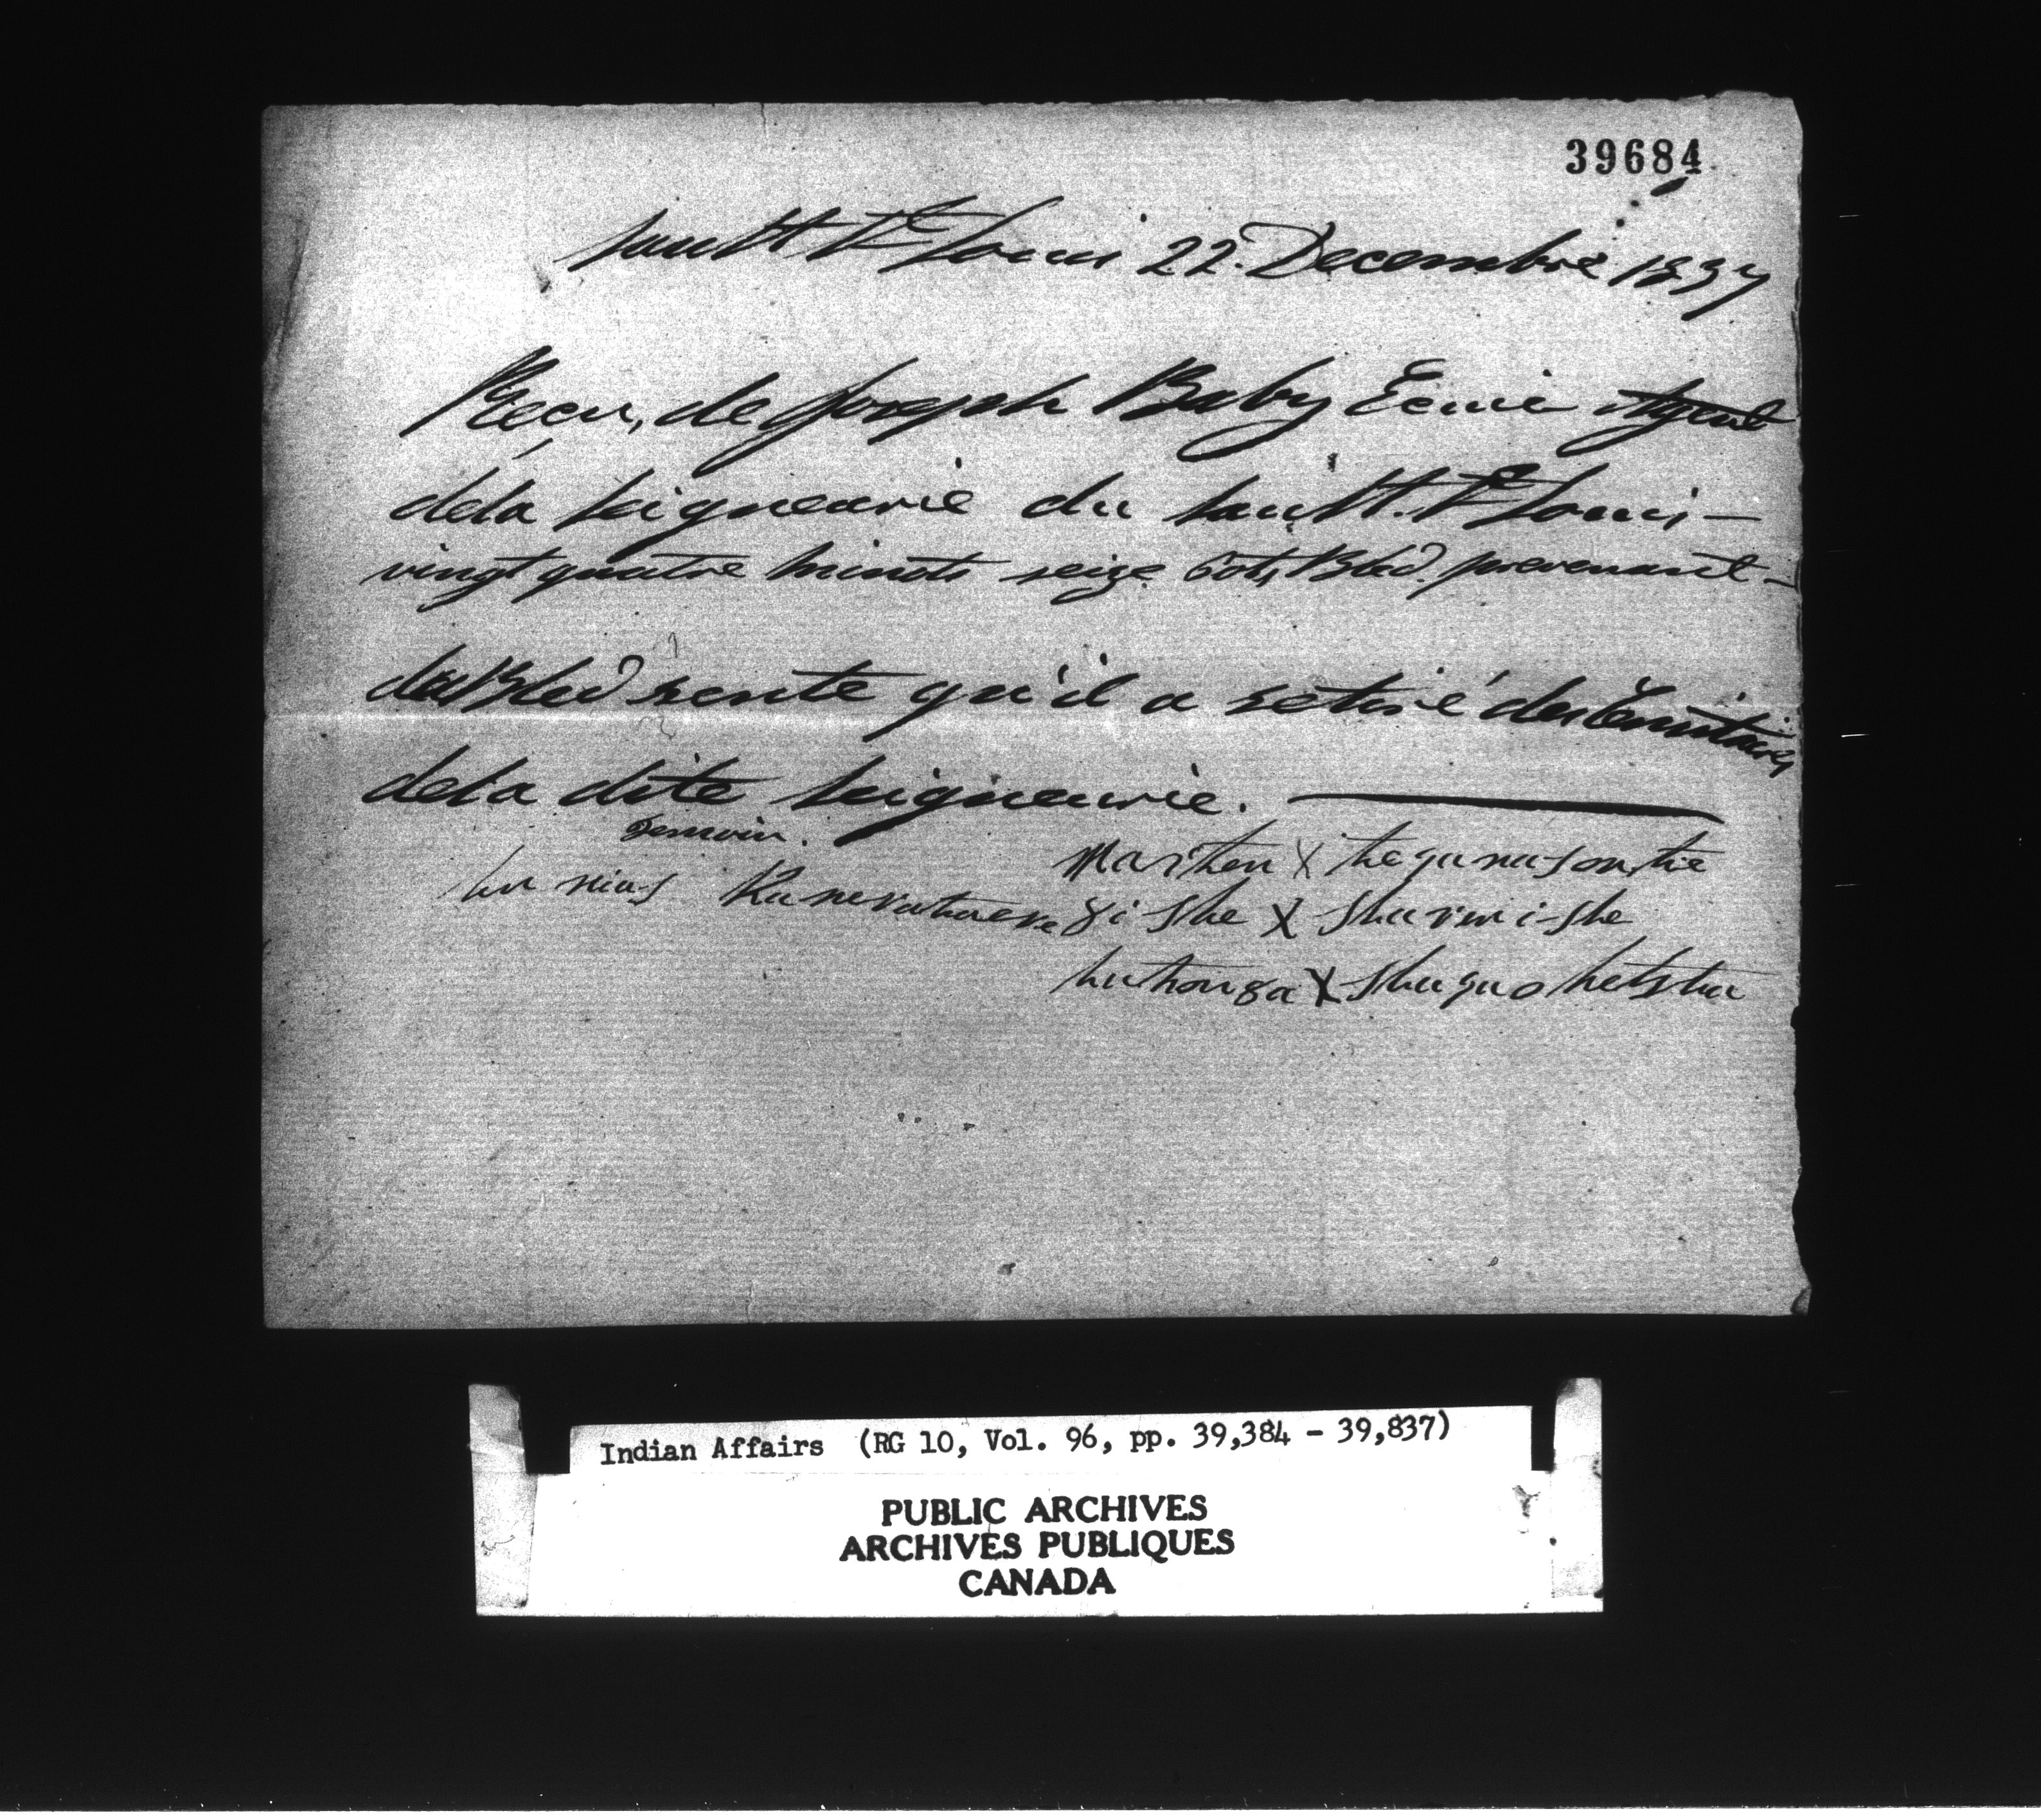 39684
Sault St Louis 22. Decembre 1837
Recu, de Joseph Baby Ecuier Agent
dela Seigneurie du Sault. St Louis —
vingt quatre minots seize Pots Bled. provenant -
du Bled rente qu'il a retiré des Censitaires
dela dite Seigneurie.
Temoin.
Marthen X theganasonthe
nias Kaneratahere
8ishe X sharenishe
huhonga X shaguohetsha
Indian Affairs (RG 10, Vol. 96, pp. 39,384 - 39,837)
PUBLIC ARCHIVES
ARCHIVES PUBLIQUES
CANADA